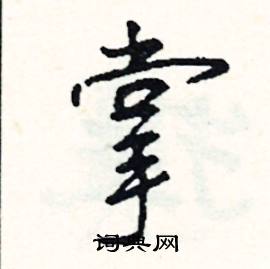 掌
词典网